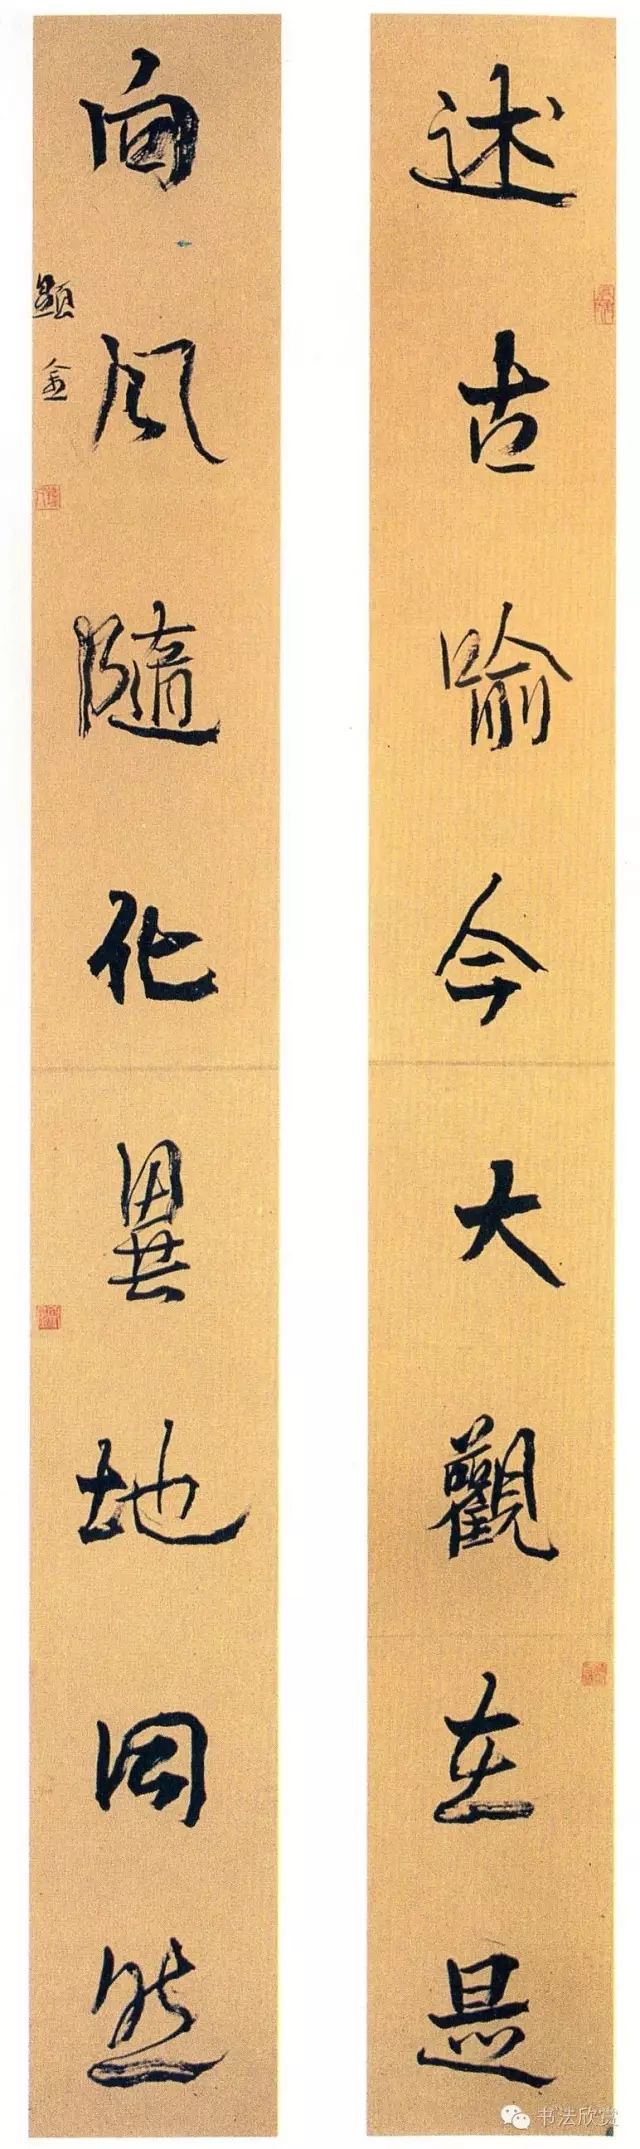 述古喻今大觀在是
向風隨化異地同然
顯金
书法欣赏